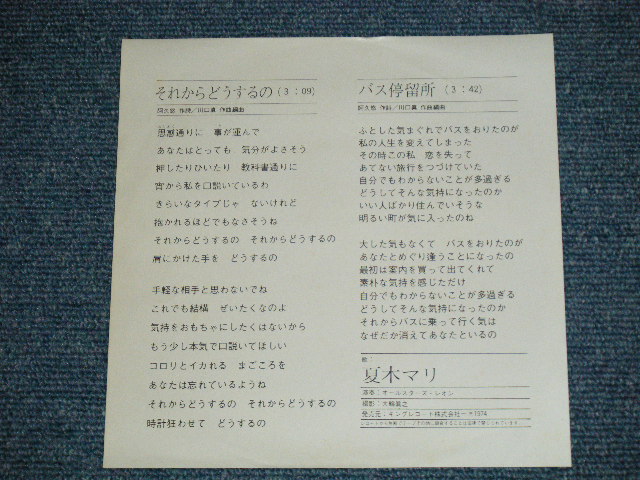 それからどうするの (3:09)
阿久悠 作詩／川口真 作曲編曲
思惑通りに 事が運んで
あなたはとっても 気分がよさそう
押したりひいたり 教科書通りに
宵から私を口説いているわ
きらいなタイプじゃ ないけれど
抱かれるほどでもなさそうね
それからどうするの それからどうするの
肩にかけた手を どうするの
手軽な相手と思わないでね
これでも結構 ぜいたくなのよ
気持をおもちゃにしたくはないから
もう少し本気で口説いてほしい
コロリとイカれる まごころを
あなたは忘れているようね
それからどうするの それからどうするの
時計狂わせて どうするの
バス停留所 (3:42)
阿久悠 作詩／川口真 作曲編曲
ふとした気まぐれでバスをおりたのが
私の人生を変えてしまった
その時この私 恋を失って
あてない旅行をつづけていた
自分でもわからないことが多過ぎる
どうしてそんな気持になったのか
いい人ばかり住んでいそうな
明るい町が気に入ったのね
大した気もなくて バスをおりたのが
あなたとめぐり逢うことになったの
最初は案内を買って出てくれて
素朴な気持を感じただけ
自分でもわからないことが多過ぎる
どうしてそんな気持になったのか
それからバスに乗って行く気は
なぜだか消えてあなたといるの
歌：
夏木マリ
演奏：オールスターズ・レオン
撮影：大輪眞之
発売元：キングレコード株式会社—Ⓟ1974